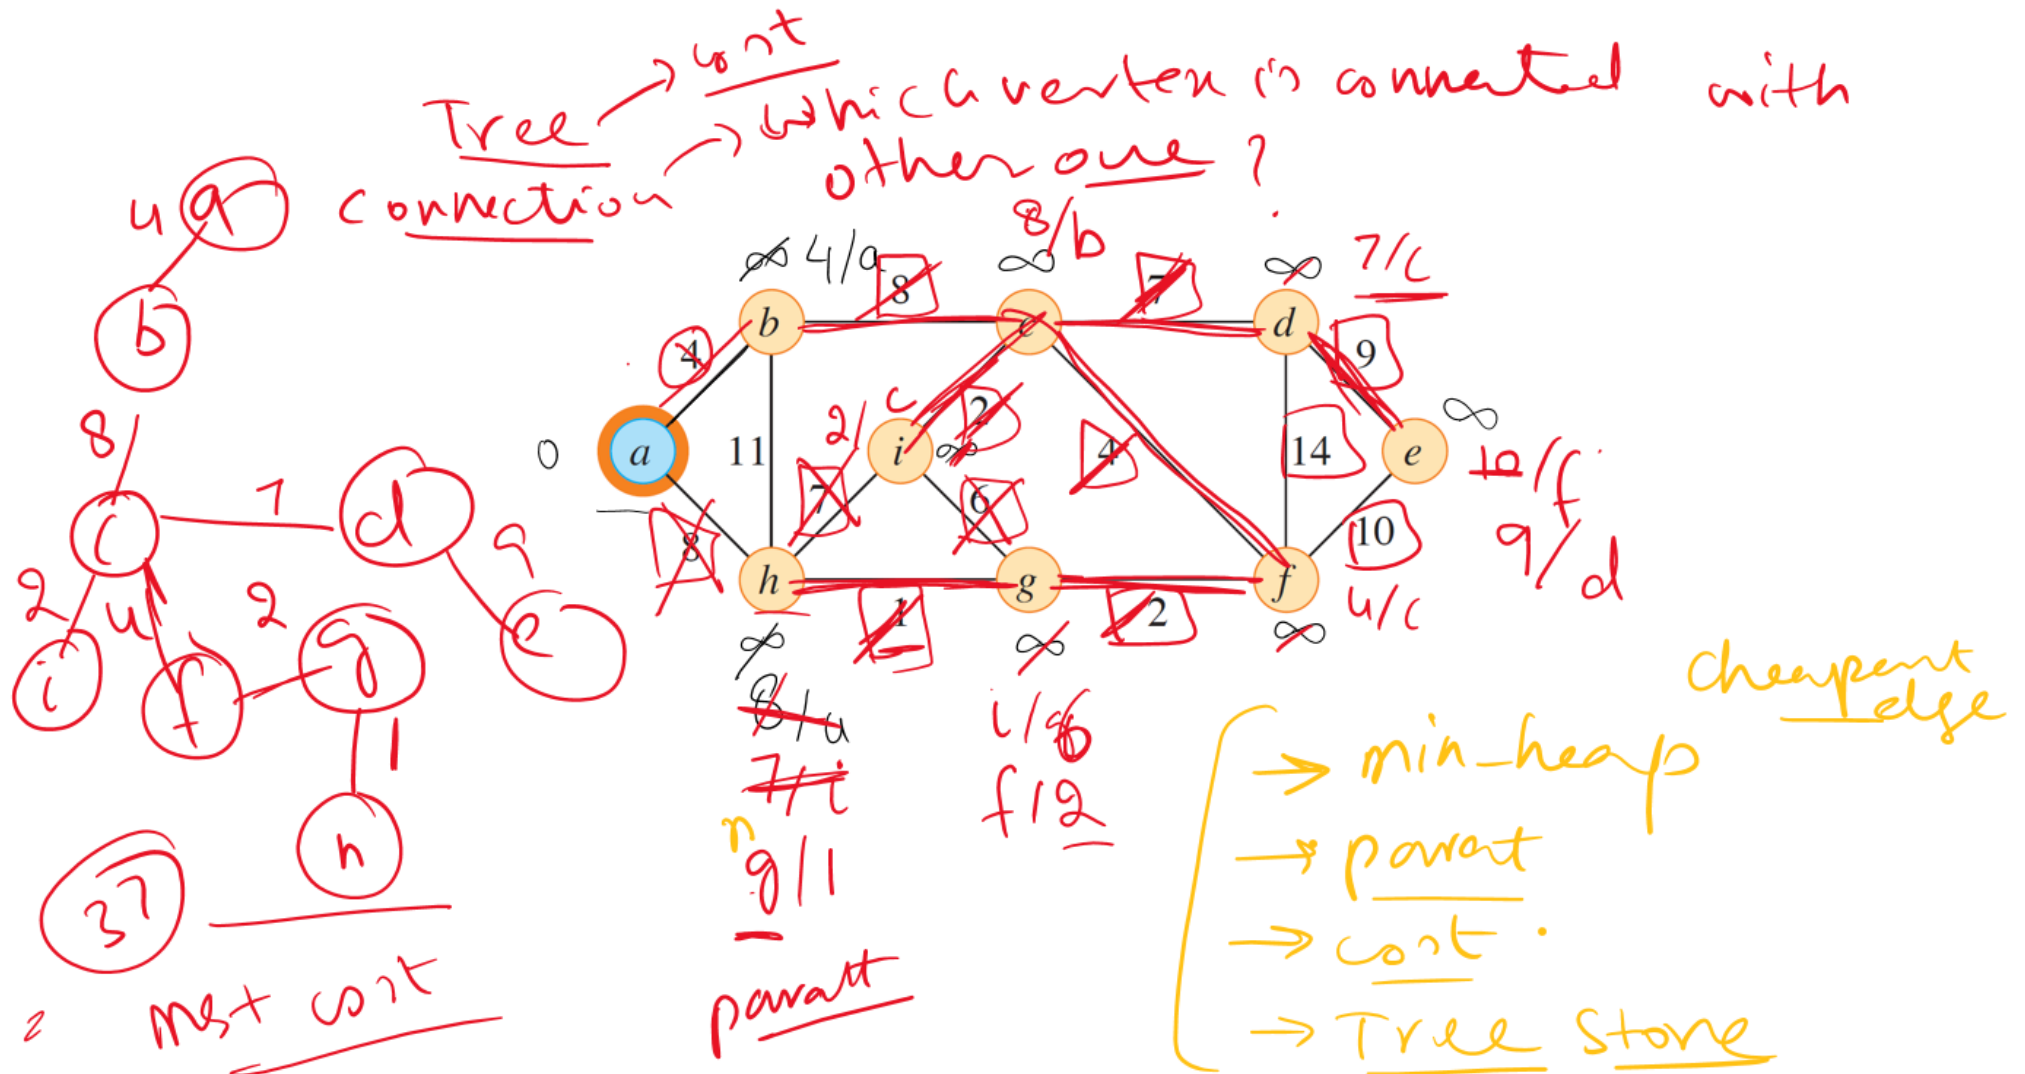 Tree → cost
connection → which vertex is connected with
other one ?
4 a
b
8
c 7 d
9
2 4 2
i f g e
1
h
37
mst cost
∞ 4/a
8/b
∞
∞ 7/c
b 8 c 7 d
4 9
∞
0 a 11 2/c i ∞ 2 4 14 e
10/f
9/d
8 7 6 10
h 1 g 2 f
4/c
∞ ∞ ∞
8/a
7/i
g/1
i/6
f/2
parent
cheapest
edge
→ min_heap
→ parent
→ cost
→ Tree Store